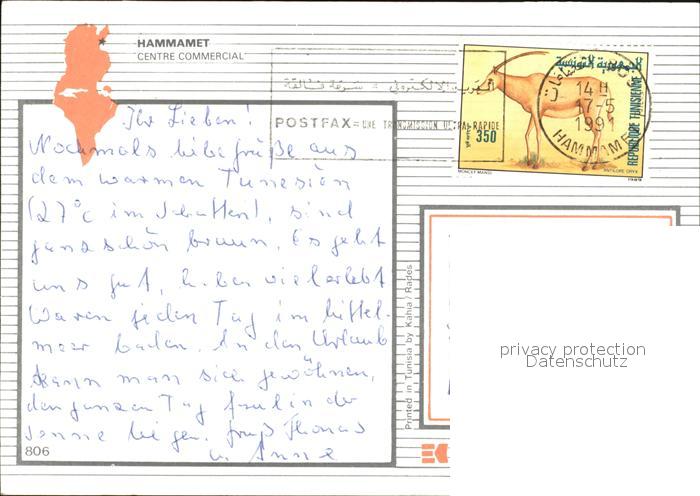 HAMMAMET
CENTRE COMMERCIAL
Ihr Lieben!
Nochmals liebe Grüße aus
dem warmen Tunesien
(27°C im Schatten), sind
ganz schön braun. Es geht
uns gut, haben viel erlebt
Waren jeden Tag im Mittel-
meer baden. An den Urlaub
kann man sich gewöhnen,
den ganzen Tag faul in der
Sonne liegen. Gruß Thomas
u. Anne
806
POSTFAX = UNE TRANSMISSION ULTRA-RAPIDE
الجمهورية التونسية
REPUBLIQUE TUNISIENNE
350
MONCEF MANSI
ANTILOPE ORYX
1989
14 H
17-5
1991
HAMMAMET
Printed in Tunisia by Kahia / Rades
privacy protection
Datenschutz